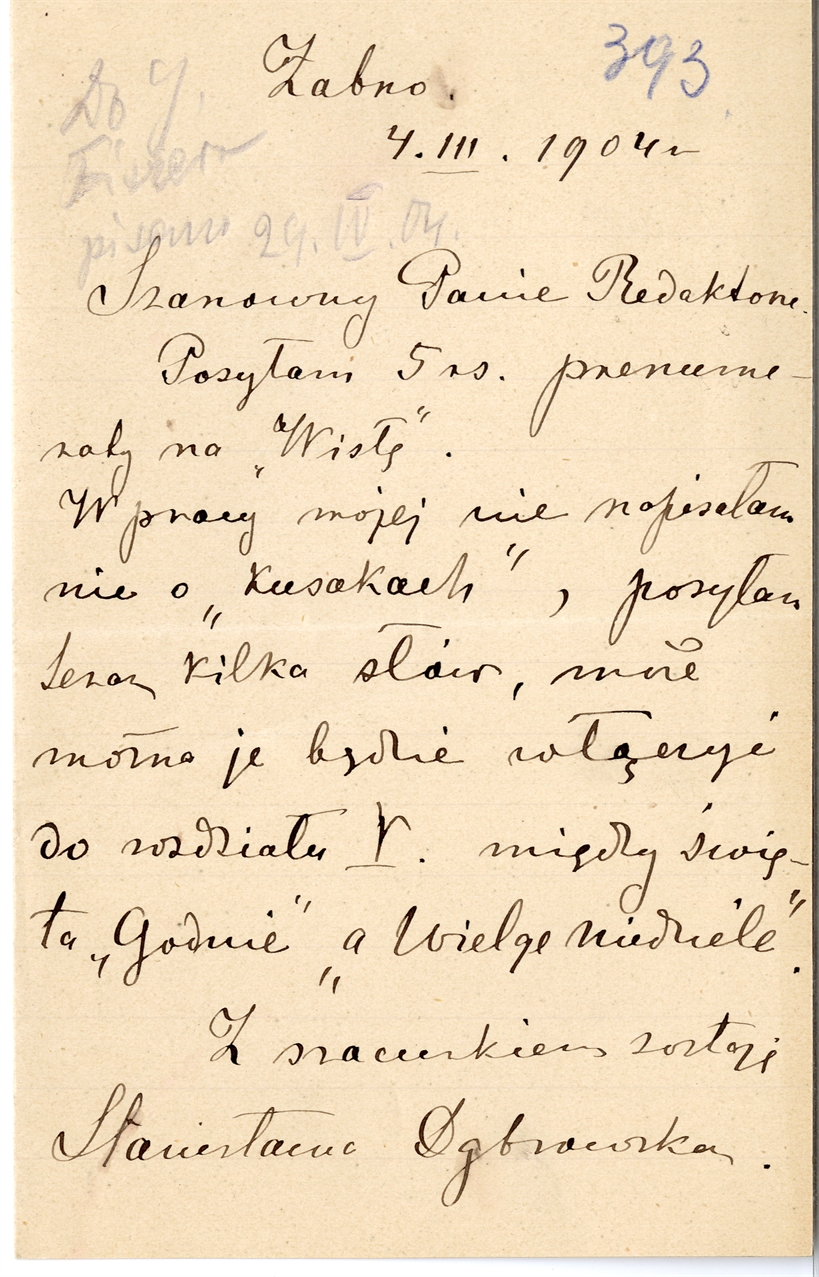 393
Żabno.
4.III. 1904 r
Do J,
Fiszera
pisano 29.IV.04.
Szanowny Panie Redaktorze.
Posyłam 5 rs. prenume-
raty na „Wisłę".
W pracy mojej nie napisałam
nic o „Kusakach", posyłam
teraz kilka słów, może
można je będzie włączyć
do rozdziału V. między świę-
ta „Godnie" a „Wielgę Niedziele".
Z szacunkiem zostaję
Stanisława Dąbrowska.